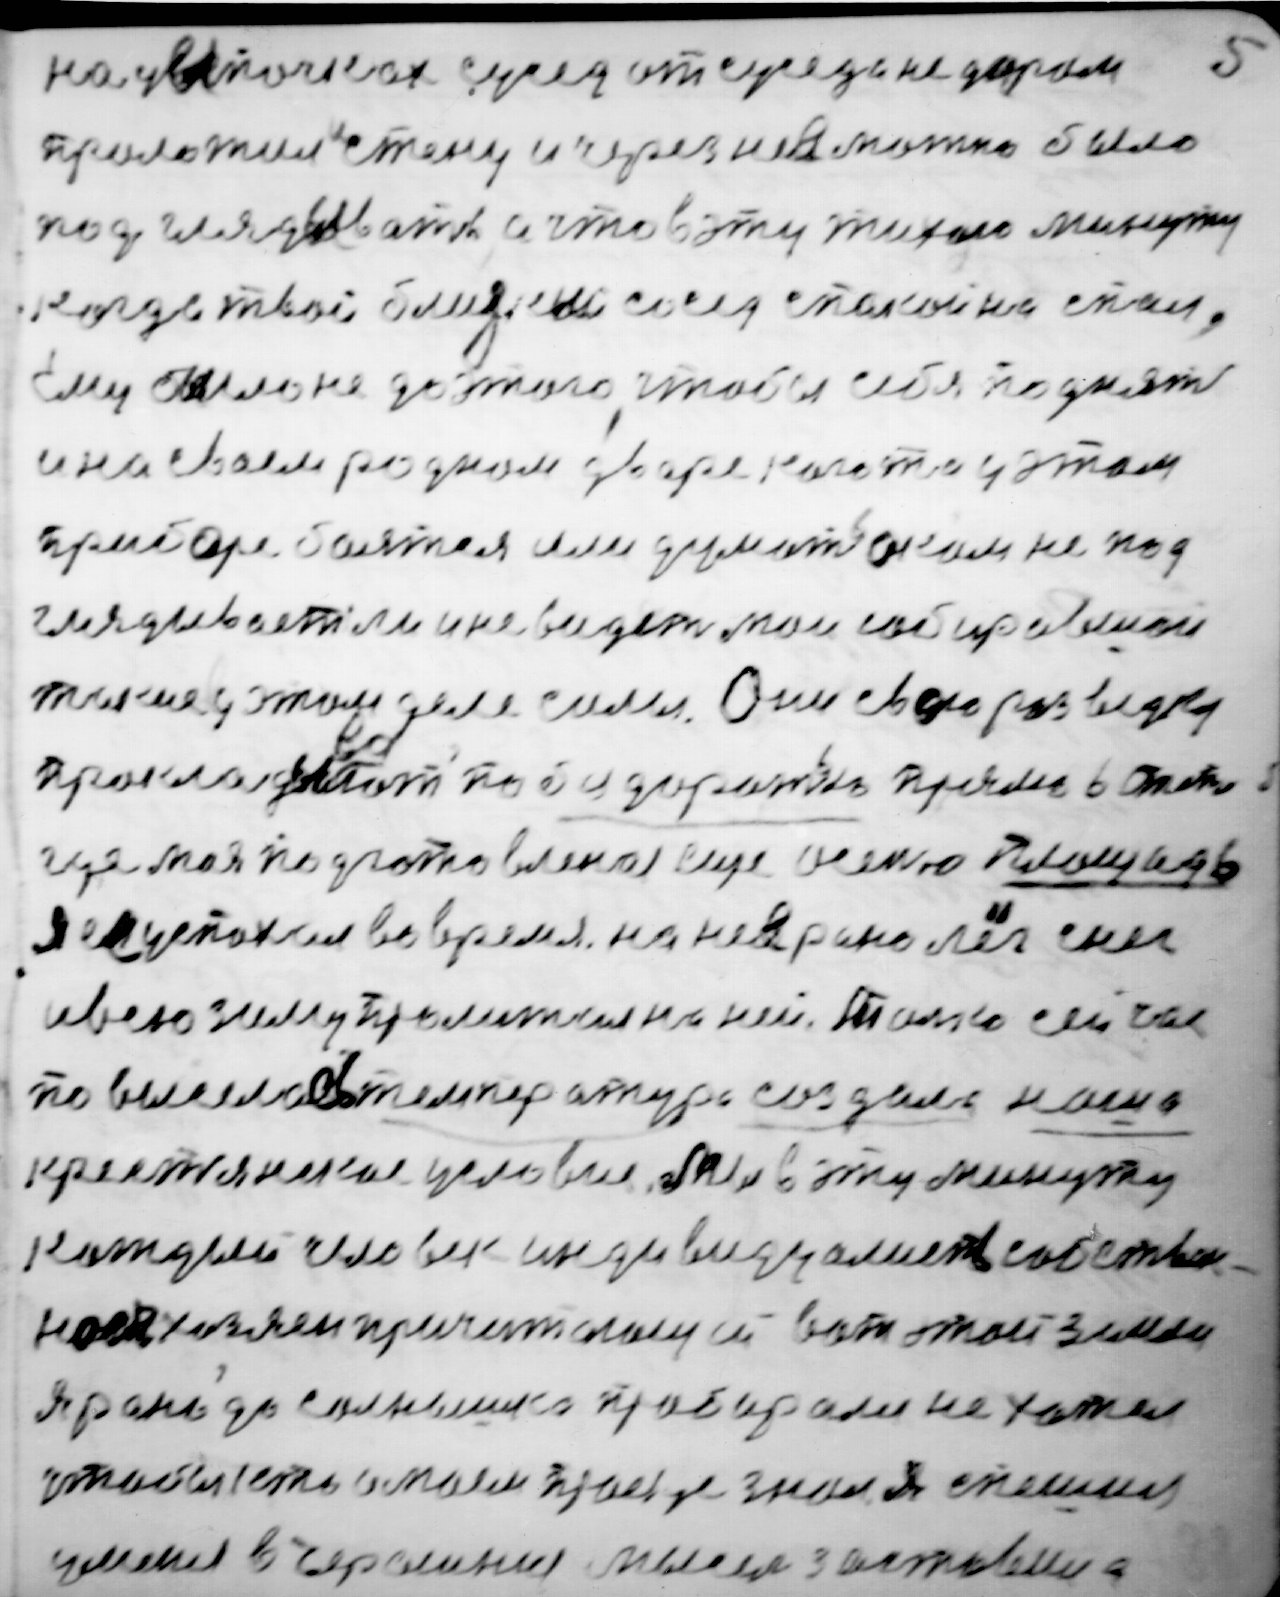 на цыпочках сусед от суседа не даром 5
проложил стену и через неё можно было
подглядывать а что в эту тихаю минуту
когда твой ближний сосед спакойна спал,
ему было не до этого, чтобы себя поднят
и на своем родном дворе кагото у этом
приборе боятся или думать окам не под
глядывает ли и не видет мои собиравшаи
такие у этом деле силы. Они свою разведку
прокладывают по бездоражью прямо в степь
где моя подготовленая еще осенью площадь
Я успахал вовремя. на неё рано лёг снег
и всю зиму пролижал на ней. Только сейчас
повыселась температура создала наша
крестянское условие. в эту минуту
каждый человек индивидуалист собствен-
ной хозяен причитающий вот этой земли
Я рано до солнышка пробирал не хател
чтобы кто о моем проезде знал Я спешил
у меня вчерашния мысел заставила